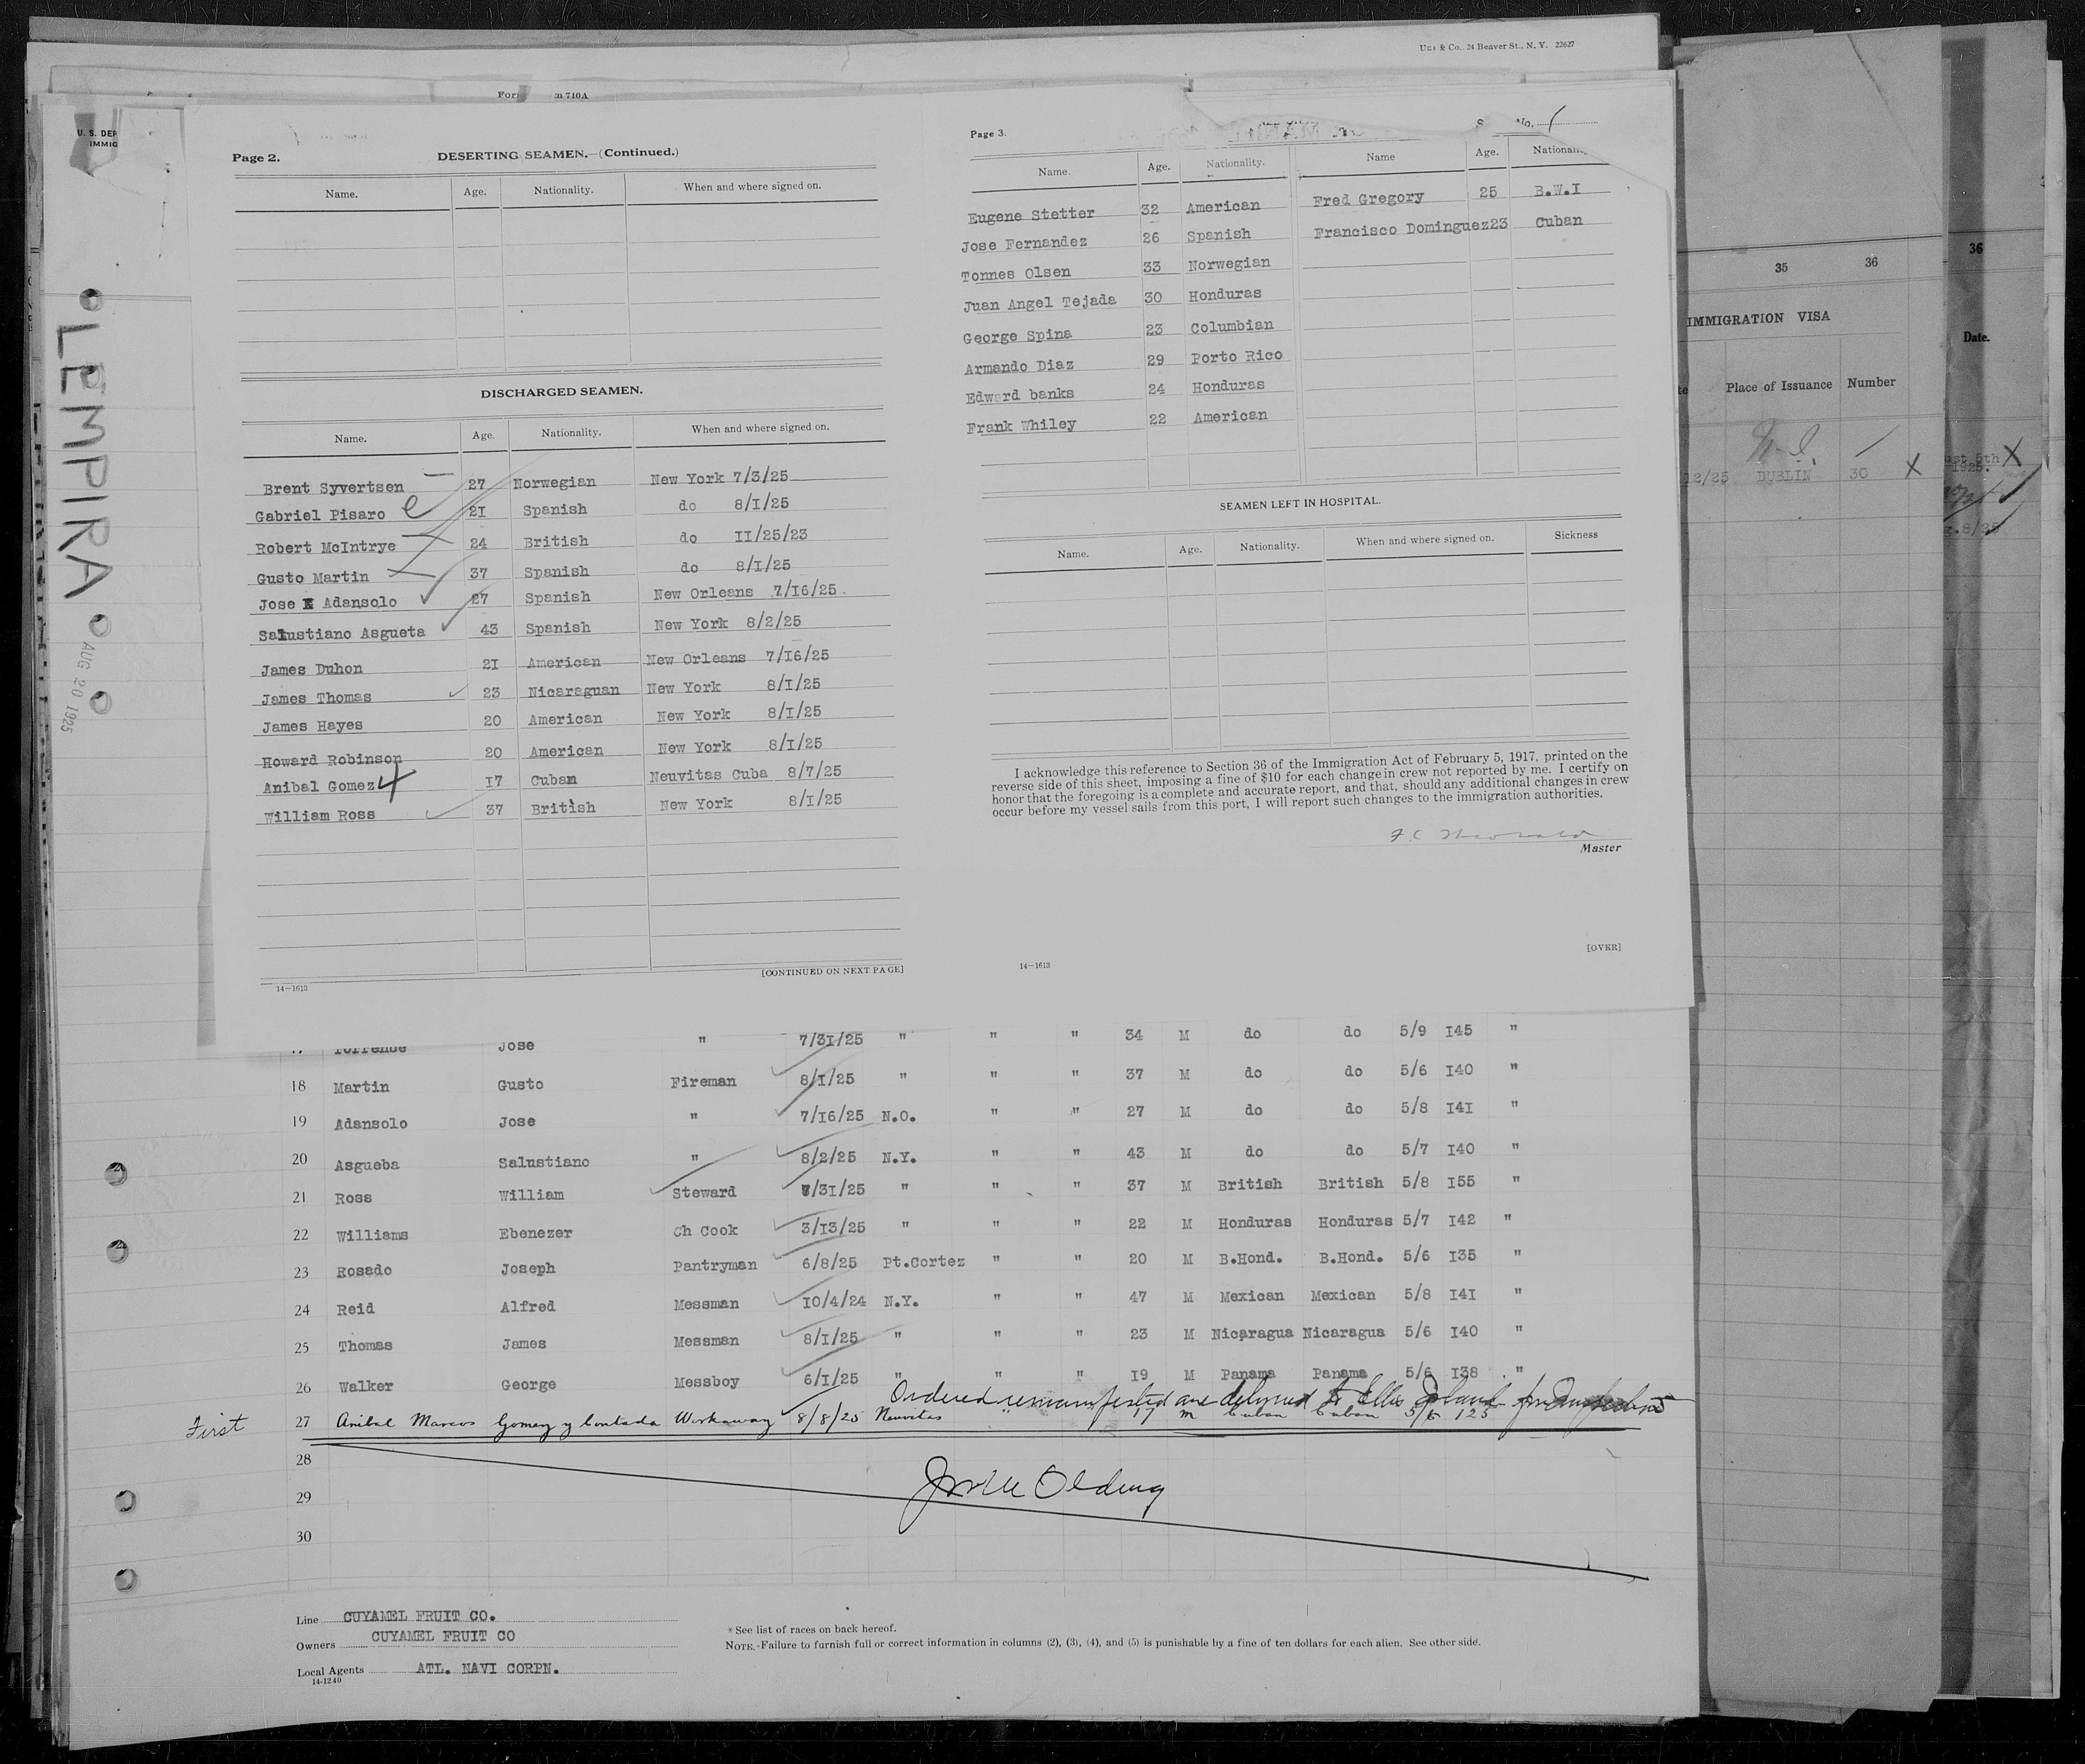 Co., 24 Beaver St., N. Y. 22627
m 710A
U. S. DEP
IMMIG
LEMPIRA
AUG 20 1925
Page 2.
DESERTING SEAMEN.—(Continued.)
Name. Age. Nationality. When and where signed on.
DISCHARGED SEAMEN.
Name. Age. Nationality. When and where signed on.
Brent Syvertsen 27 Norwegian New York 7/3/25
Gabriel Pisaro 21 Spanish do 8/1/25
Robert McIntrye 24 British do II/25/23
Gusto Martin 37 Spanish do 8/1/25
Jose Adansolo 27 Spanish New Orleans 7/16/25.
Salustiano Asgueta 43 Spanish New York 8/2/25
James Duhon 21 American New Orleans 7/16/25
James Thomas 23 Nicaraguan New York 8/1/25
James Hayes 20 American New York 8/1/25
Howard Robinson 20 American New York 8/1/25
Anibal Gomez 17 Cuban Neuvitas Cuba 8/7/25
William Ross 37 British New York 8/1/25
[CONTINUED ON NEXT PAGE]
14—1613
Page 3.
No.
Name. Age. Nationality. Name Age. Nationali
Eugene Stetter 32 American Fred Gregory 25 B.W.I
Jose Fernandez 26 Spanish Francisco Dominguez 23 Cuban
Tonnes Olsen 33 Norwegian
Juan Angel Tejada 30 Honduras
George Spina 23 Columbian
Armando Diaz 29 Porto Rico
Edward banks 24 Honduras
Frank Whiley 22 American
SEAMEN LEFT IN HOSPITAL.
Name. Age. Nationality. When and where signed on. Sickness
I acknowledge this reference to Section 36 of the Immigration Act of February 5, 1917, printed on the
reverse side of this sheet, imposing a fine of $10 for each change in crew not reported by me. I certify on
honor that the foregoing is a complete and accurate report, and that, should any additional changes in crew
occur before my vessel sails from this port, I will report such changes to the immigration authorities.
Master
[OVER]
14—1613
35 36
IMMIGRATION VISA
Place of Issuance Number
12/25 DUBLIN 30 X
36
Date.
ust 5th X
1925.
g.8/25
Torrense Jose " 7/31/25 " " " 34 M do do 5/9 145 "
18 Martin Gusto Fireman 8/1/25 " " " 37 M do do 5/6 140 "
19 Adansolo Jose " 7/16/25 N.O. " " 27 M do do 5/8 141 "
20 Asgueba Salustiano " 8/2/25 N.Y. " " 43 M do do 5/7 140 "
21 Ross William Steward 7/31/25 " " " 37 M British British 5/8 155 "
22 Williams Ebenezer Ch Cook 3/13/25 " " " 22 M Honduras Honduras 5/7 142 "
23 Rosado Joseph Pantryman 6/8/25 Pt.Cortez " " 20 M B.Hond. B.Hond. 5/6 135 "
24 Reid Alfred Messman 10/4/24 N.Y. " " 47 M Mexican Mexican 5/8 141 "
25 Thomas James Messman 8/1/25 " " " 23 M Nicaragua Nicaragua 5/6 140 "
26 Walker George Messboy 6/1/25 " " " 19 M Panama Panama 5/6 138 "
Ordered remanifested and delivered to Ellis Island for
First 27 Anibal Marcos Gomez y Contada Workaway 8/8/25 Neuvitas " 17 m Cuban Cuban 5/5 125
28
29
30
Line CUYAMEL FRUIT CO.
Owners CUYAMEL FRUIT CO
Local Agents ATL. NAVI CORPN.
14-1240
* See list of races on back hereof.
NOTE.-Failure to furnish full or correct information in columns (2), (3), (4), and (5) is punishable by a fine of ten dollars for each alien. See other side.